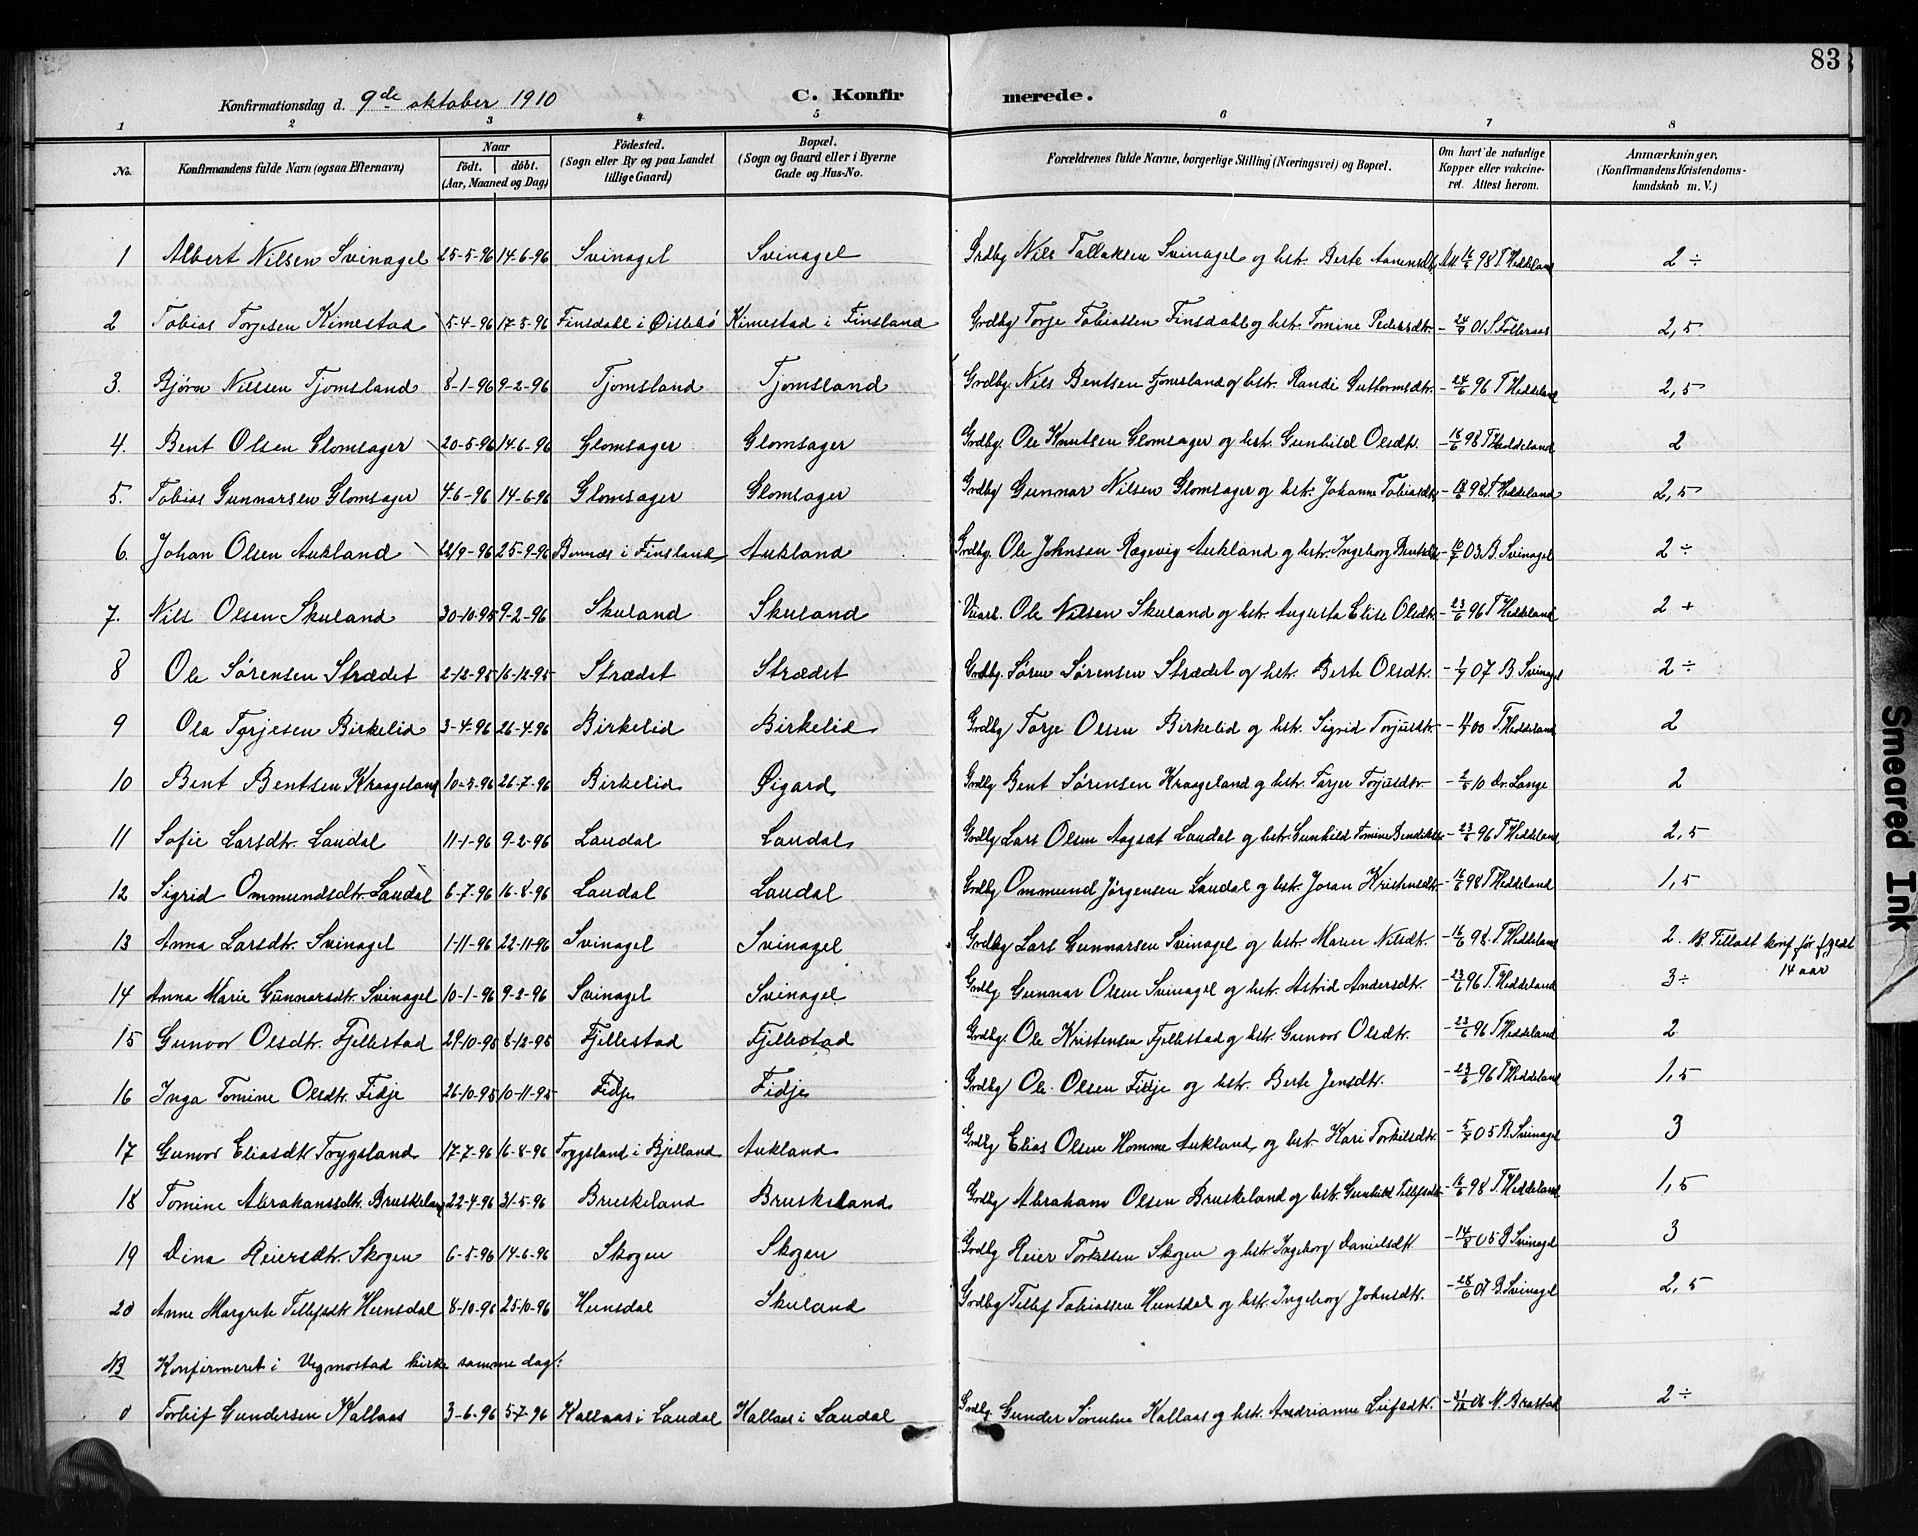 83
Konfirmationsdag d. 9de oktober 1910 C. Konfirmerede.
1 2 3 4 5 6 7 8
No. Konfirmandens fulde Navn (ogsaa Efternavn) Naar født. døbt. (Aar, Maaned og Dag) Födested. (Sogn eller By og paa Landet tillige Gaard) Bopæl. (Sogn og Gaard eller i Byerne Gade og Hus-No. Forældrenes fulde Navne, borgerlige Stilling (Næringsvei) og Bopæl. Om havt de naturlige Kopper eller vakcineret. Attest herom. Anmærkninger. (Konfirmandens Kristendomskundskab m. V.)
1 Albert Nilsen Svinagel 25-5-96 14-6-96 Svinagel Svinagel Grdbg Nils Tallaksen Svinagel og hstr. Berte Aanensdtr. 16/6 98 T. Heddeland 2 ÷
2 Tobias Torjesen Kimestad 5-4-96 17-5-96 Finsdall i Øislebø Kimestad i Finsland Grdbg Torje Tobiassen Finsdahl og hstr. Tomine Pedersdtr. - 24/9 01 S. Folleraas 2,5
3. Bjørn Nilssen Tjomsland 8-1-96 9-2-96 Tjomsland Tjomsland Grdbg. Nils Bentsen Tjomsland og hstr. Randi Guttormsdtr. - 24/6 96 T Heddeland 2,5
4. Bent Olsen Glomsager 20-5-96 14-6-96 Glomsager Glomsager Grdbg. Ole Knutsen Glomsager og hstr. Gunhild Olsdtr. - 16/6 98 T. Heddeland 2
5. Tobias Gunnarsen Glomsager 4-6-96 14-6-96 Glomsager Glomsager Grdbg Gunnar Nilsen Glomsager og hstr. Johanne Tobiasdtr - 16/6 98 T. Heddeland 2,5
6. Johan Olsen Aukland 22/9-96 25-9-96 i Finsland Aukland Grdbg. Ole Johnsen Røgevig Aukland og hstr. Ingeborg Bentsdtr - 10/7 03 B. Svinagel 2 ÷
7. Nils Olsen Skuland 30-10-95 9-2-96 Skuland Skuland Ole Nilsen Skuland og hstr. Augusta Elise Olsdtr. - 23/6 96 T Heddeland 2 +
8 Ole Sørensen Strædet 2-12-95 16-12-95 Strædet Strædet Grdbg. Søren Sørensen Strædet og hstr. Berte Olsdtr. - 1/7 07 B. Svinagel 2 ÷
9 Ola Torjesen Birkelid 3-4-96 26-4-96 Birkelid Birkelid Grdbg Torje Olsen Birkelid og hstr. Sigrid Torjusdtr. - 00 T. Heddeland 2
10 Bent Bentsen Kraageland 10-3-96 26-7-96 Birkelid Øigard Grdbg Bent Sørensen Kraageland og hstr. Torjer Torjusdtr - 2/6 10 Dr. Lange 2
11 Sofie Larsdtr. Laudal 11-1-96 9-2-96 Laudal Laudal Grdbg Lars Olsen Aagsæt Laudal og hstr. Gunhild Tomine - 23/6 96 T Heddeland 2,5
12 Sigrid Ommundsdtr. Laudal 6-7-96 16-8-96 Laudal Laudal Grdbg Ommund Jørgensen Laudal og hstr. Joran Kristensdtr - 16/6 98 T Heddeland 1,5
13 Anna Larsdtr. Svinagel 1-11-96 22-11-96 Svinagel Svinagel Grdbg Lars Gunnarsen Svinagel og hstr. Maren Nilsdtr. - 16/6 98 T. Heddeland 2. NB. Tillatt konf. før fyldt 14 aar
14 Anna Marie Gunnarsdtr. Svinagel 10-1-96 9-2-96 Svinagel Svinagel Grdbg Gunnar Olsen Svinagel og hstr. Astrid Andersdtr. - 23/6 96 T. Heddeland 3 ÷
15 Gunvor Olsdtr. Fjellestad 29-10-95 8-12-95 Fjellestad Fjellestad Grdbg. Ole Kristensen Fjellestad og hstr. Gunvor Olsdtr. - 23/6 96 T Heddeland 2
16 Inga Tomine Olsdtr. Fidje 26-10-95 10-11-95 Fidje Fidje Grdbg Ole Olsen Fidje og hstr. Berte Jensdtr. - 23/6 96 T Heddeland 1,5
17 Gunvor Eliasdtr Trygsland 17-7-96 16-8-96 Trygsland i Bjelland Aukland Grdbg Elias Olsen Homme Aukland og hstr. Kari Torkilsdtr. - 5/7 05 B. Svinagel 3
18 Tomine Abrahamsdtr. Bruskeland 22-4-96 31-5-96 Bruskeland Bruskeland Grdbg Abraham Olsen Bruskeland og hstr. Gunhild Tellefsdtr - 16/6 98 T. Heddeland 1,5
19 Dina Reiersdtr. Skogen 6-5-96 14-6-96 Skogen Skogen Grdbg Reier Torkelsen Skogen og hstr Ingeborg Danielsdtr - 14/8 05 B Svinagel 3
20 Anne Margrete Tellefsdtr Hunsdal 8-10-96 25-10-96 Hunsdal Skuland Grdbg Tellef Tobiassen Hunsdal og hstr. Ingeborg Johnsdtr. - 28/6 07 B. Svinagel 2,5
NB Konfirmeret i Vigmostad kirke samme dag:
0 Torleif Gundersen Kallaas 3-6-96 5-7-96 Kallaas i Laudal Kallaas i Laudal Grdbg. Gunder Kallaas og hstr. Andrianne Leifsdtr. - 31/12 06 N. Brastad 2 ÷
Smeared Ink